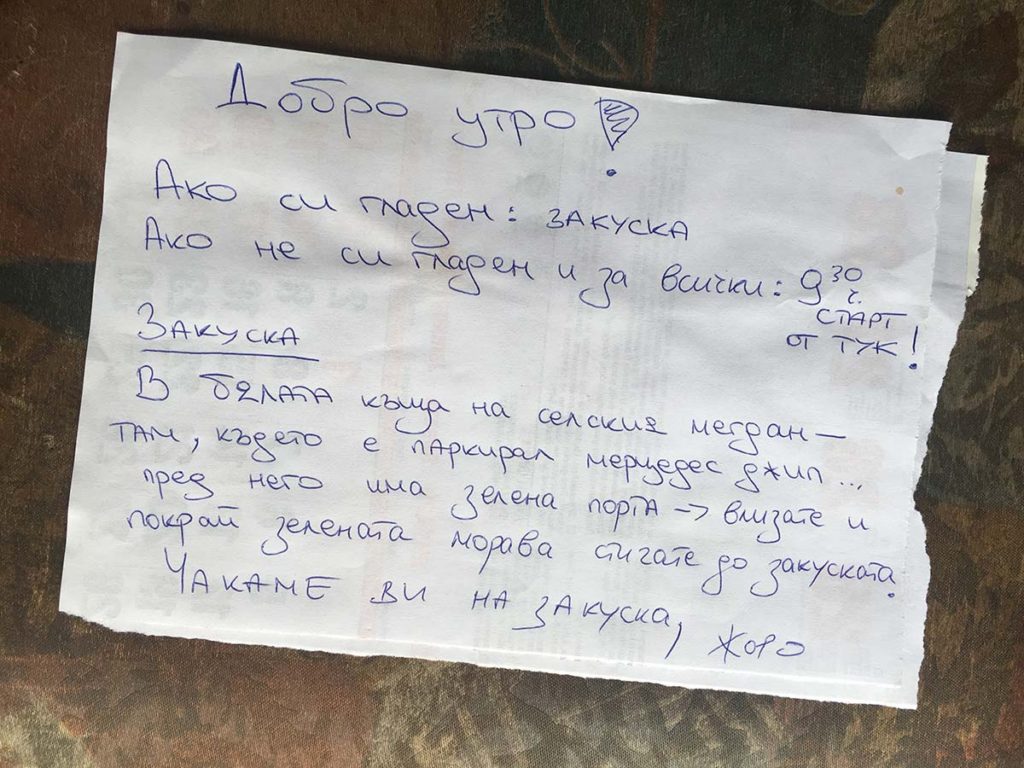 Добро утро!
Ако си гладен: ЗАКУСКА
Ако не си гладен и за всички: 9³⁰
ч.
СТАРТ
от ТУК!
ЗАКУСКА
В бялата къща на селския мегдан –
там, където е паркирал мерцедес джип...
пред него има зелена порта → влизате и
покрай зелената морава стигате до закуската.
Чакаме ви на закуска, Жоро